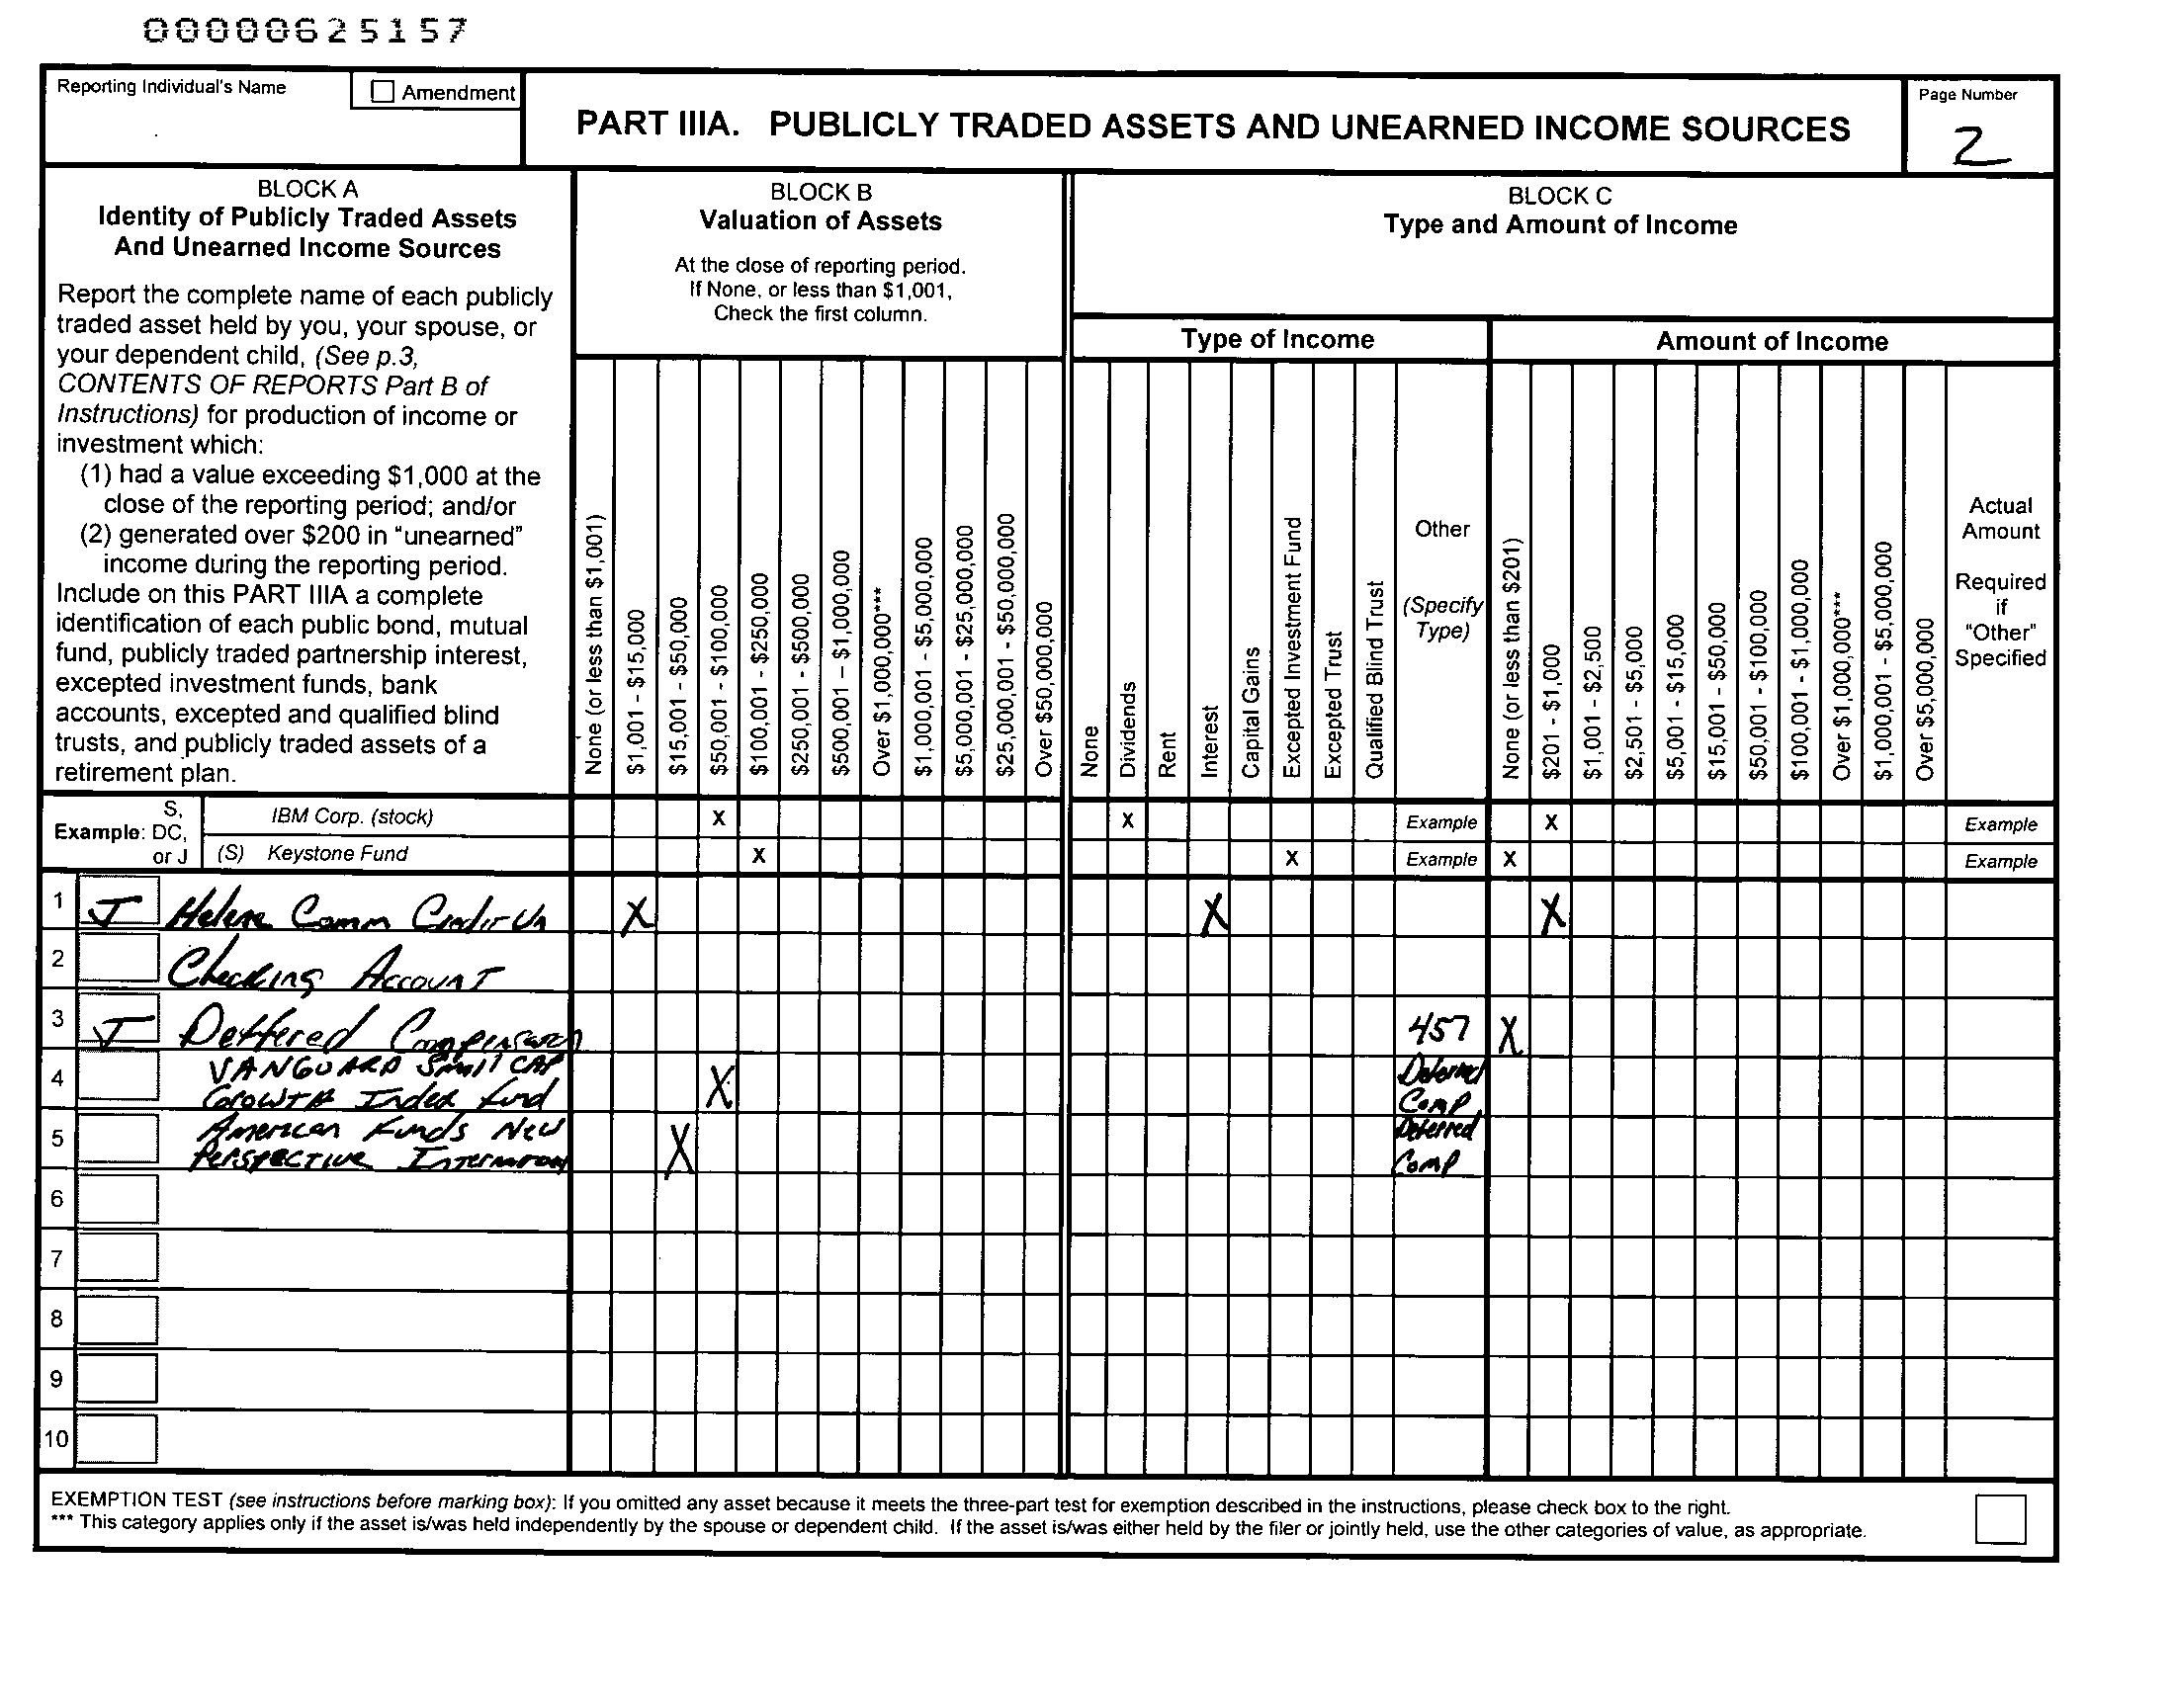 00000625157
Reporting Individual's Name
Amendment
PART IIIA. PUBLICLY TRADED ASSETS AND UNEARNED INCOME SOURCES
Page Number
2
BLOCK A
Identity of Publicly Traded Assets
And Unearned Income Sources
Report the complete name of each publicly
traded asset held by you, your spouse, or
your dependent child, (See p.3,
CONTENTS OF REPORTS Part B of
Instructions) for production of income or
investment which:
(1) had a value exceeding $1,000 at the
close of the reporting period; and/or
(2) generated over $200 in "unearned"
income during the reporting period.
Include on this PART IIIA a complete
identification of each public bond, mutual
fund, publicly traded partnership interest,
excepted investment funds, bank
accounts, excepted and qualified blind
trusts, and publicly traded assets of a
retirement plan.
BLOCK B
Valuation of Assets
At the close of reporting period.
If None, or less than $1,001,
Check the first column.
None (or less than $1,001)
$1,001 - $15,000
$15,001 - $50,000
$50,001 - $100,000
$100,001 - $250,000
$250,001 - $500,000
$500,001 – $1,000,000
Over $1,000,000***
$1,000,001 - $5,000,000
$5,000,001 - $25,000,000
$25,000,001 - $50,000,000
Over $50,000,000
BLOCK C
Type and Amount of Income
Type of Income
None
Dividends
Rent
Interest
Capital Gains
Excepted Investment Fund
Excepted Trust
Qualified Blind Trust
Other
(Specify
Type)
Amount of Income
None (or less than $201)
$201 - $1,000
$1,001 - $2,500
$2,501 - $5,000
$5,001 - $15,000
$15,001 - $50,000
$50,001 - $100,000
$100,001 - $1,000,000
Over $1,000,000***
$1,000,001 - $5,000,000
Over $5,000,000
Actual
Amount
Required
if
"Other"
Specified
Example: S, DC, or J
IBM Corp. (stock) X X Example X Example
(S) Keystone Fund X X Example X Example
1 J Helena Comm Credit Un X X X
2 Checking Account
3 J Deffered Compensation 457 X
4 VANGUARD Small CAP
Growth Index Fund X Deferred
Comp
5 American Funds New
Perspective X Deferred
Comp
6
7
8
9
10
EXEMPTION TEST (see instructions before marking box): If you omitted any asset because it meets the three-part test for exemption described in the instructions, please check box to the right.
*** This category applies only if the asset is/was held independently by the spouse or dependent child. If the asset is/was either held by the filer or jointly held, use the other categories of value, as appropriate.